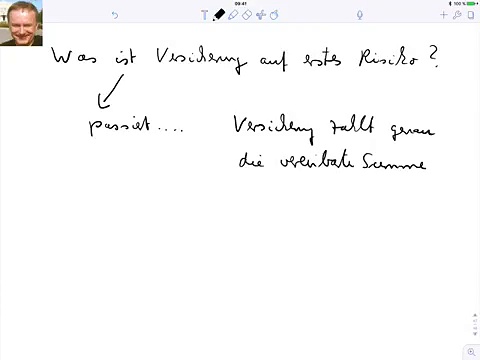 09:41
100 %
T
Was ist Versicherung auf erstes Risiko?
passiert.... Versicherung zahlt genau
die vereinbarte Summe